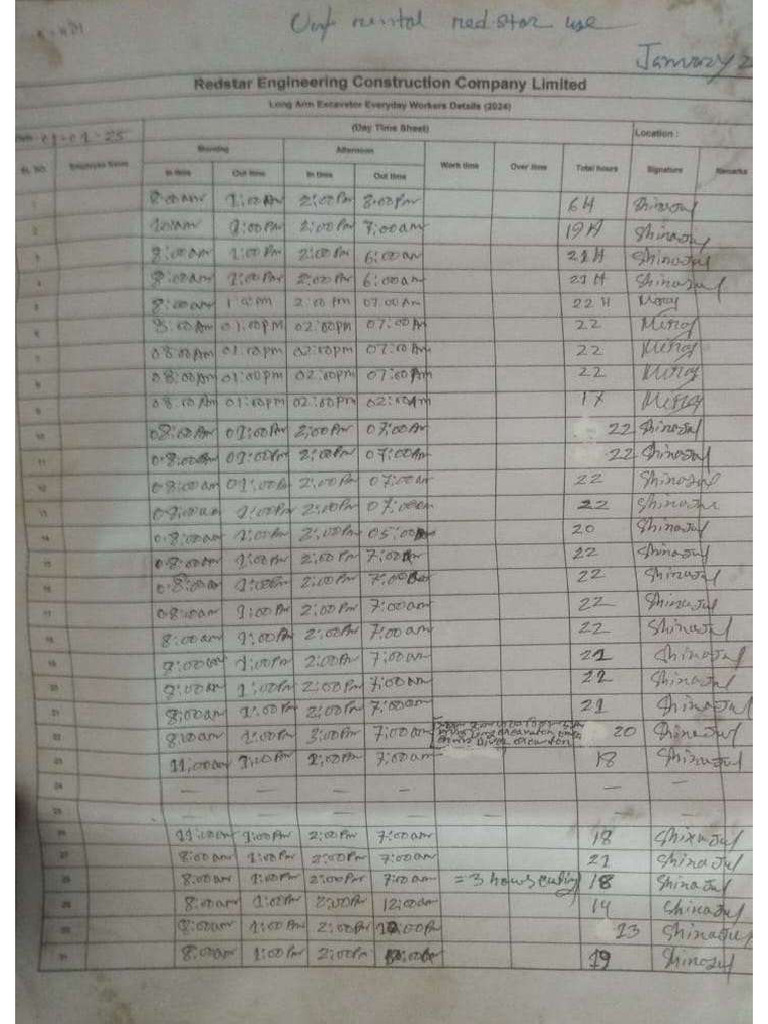 rental redstar use
January 2
Redstar Engineering Construction Company Limited
Long Arm Excavator Everyday Workers Details (2024)
01-01-25 (Day Time Sheet) Location :
SL NO. Employee Name Morning Afternoon Work time Over time Total hours Signature Remarks
In time Out time In time Out time
1 8:00am 1:00Am 2:00Pm 8:00Pm 6H Shinajul
2 1:00Pm 2:00Pm 7:00am 19H Shinajul
3 8:00am 1:00Pm 2:00Pm 6:00am 21H Shinajul
4 8:00am 1:00Pm 2:00Pm 6:00am 21H Shinajul
5 8:00am 2:00 Pm 07:00 Am 22 H Meraj
6 8:00Am 01:00pm 02:00pm 07:00Am 22 Meraj
7 08:00Am 01:00pm 02:00pm 07:00Am 22 Meraj
8 08:00Am 01:00pm 02:00pm 07:00Am 22 Meraj
9 08:00Am 01:00pm 02:00pm 02:00Am 17 Meraj
10 08:00Am 01:00Pm 2:00Pm 07:00Am 22 Shinajul
11 08:00am 01:00Pm 2:00Pm 07:00am 22 Shinajul
12 08:00am 01:00Pm 2:00Pm 07:00am 22 Shinajul
13 08:00am 1:00Pm 2:00Pm 07:00am 22 Shinajul
14 08:00am 1:00Pm 2:00Pm 05:00 20 Shinajul
15 08:00am 1:00Pm 2:00Pm 7:00 22 Shinajul
16 08:00am 1:00Pm 2:00Pm 7:00 22 Shinajul
17 08:00am 1:00Pm 2:00Pm 7:00am 22 Shinajul
18 8:00am 1:00Pm 2:00Pm 7:00am 22 Shinajul
19 9:00am 1:00Pm 2:00Pm 7:00am 21 Shinajul
20 1:00Pm 2:00Pm 7:00am 22 Shinajul
21 8:00am 1:00Pm 2:00Pm 7:00am 21 Shinajul
22 8:00am 1:00Pm 3:00Pm 7:00am 20 Shinajul
23 11:00am 1:00Pm 2:00Pm 7:00am 18 Shinajul
24 — — — — — —
25 — — — — — —
26 11:00am 1:00Pm 2:00Pm 7:00am 18 Shinajul
27 8:00am 1:00Pm 2:00Pm 7:00am 21 Shinajul
28 8:00am 1:00Pm 2:00Pm 7:00am = 3 hours 18 Shinajul
29 8:00am 1:00Pm 2:00Pm 12:00am 14 Shinajul
30 8:00am 1:00Pm 2:00Pm 23 Shinajul
31 8:00am 1:00Pm 2:00Pm 19 Shinajul